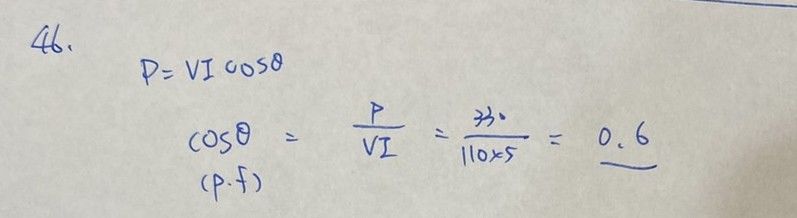 46.
P = VI cosθ
cosθ = P/VI = 330/110×5 = 0.6
(p.f)